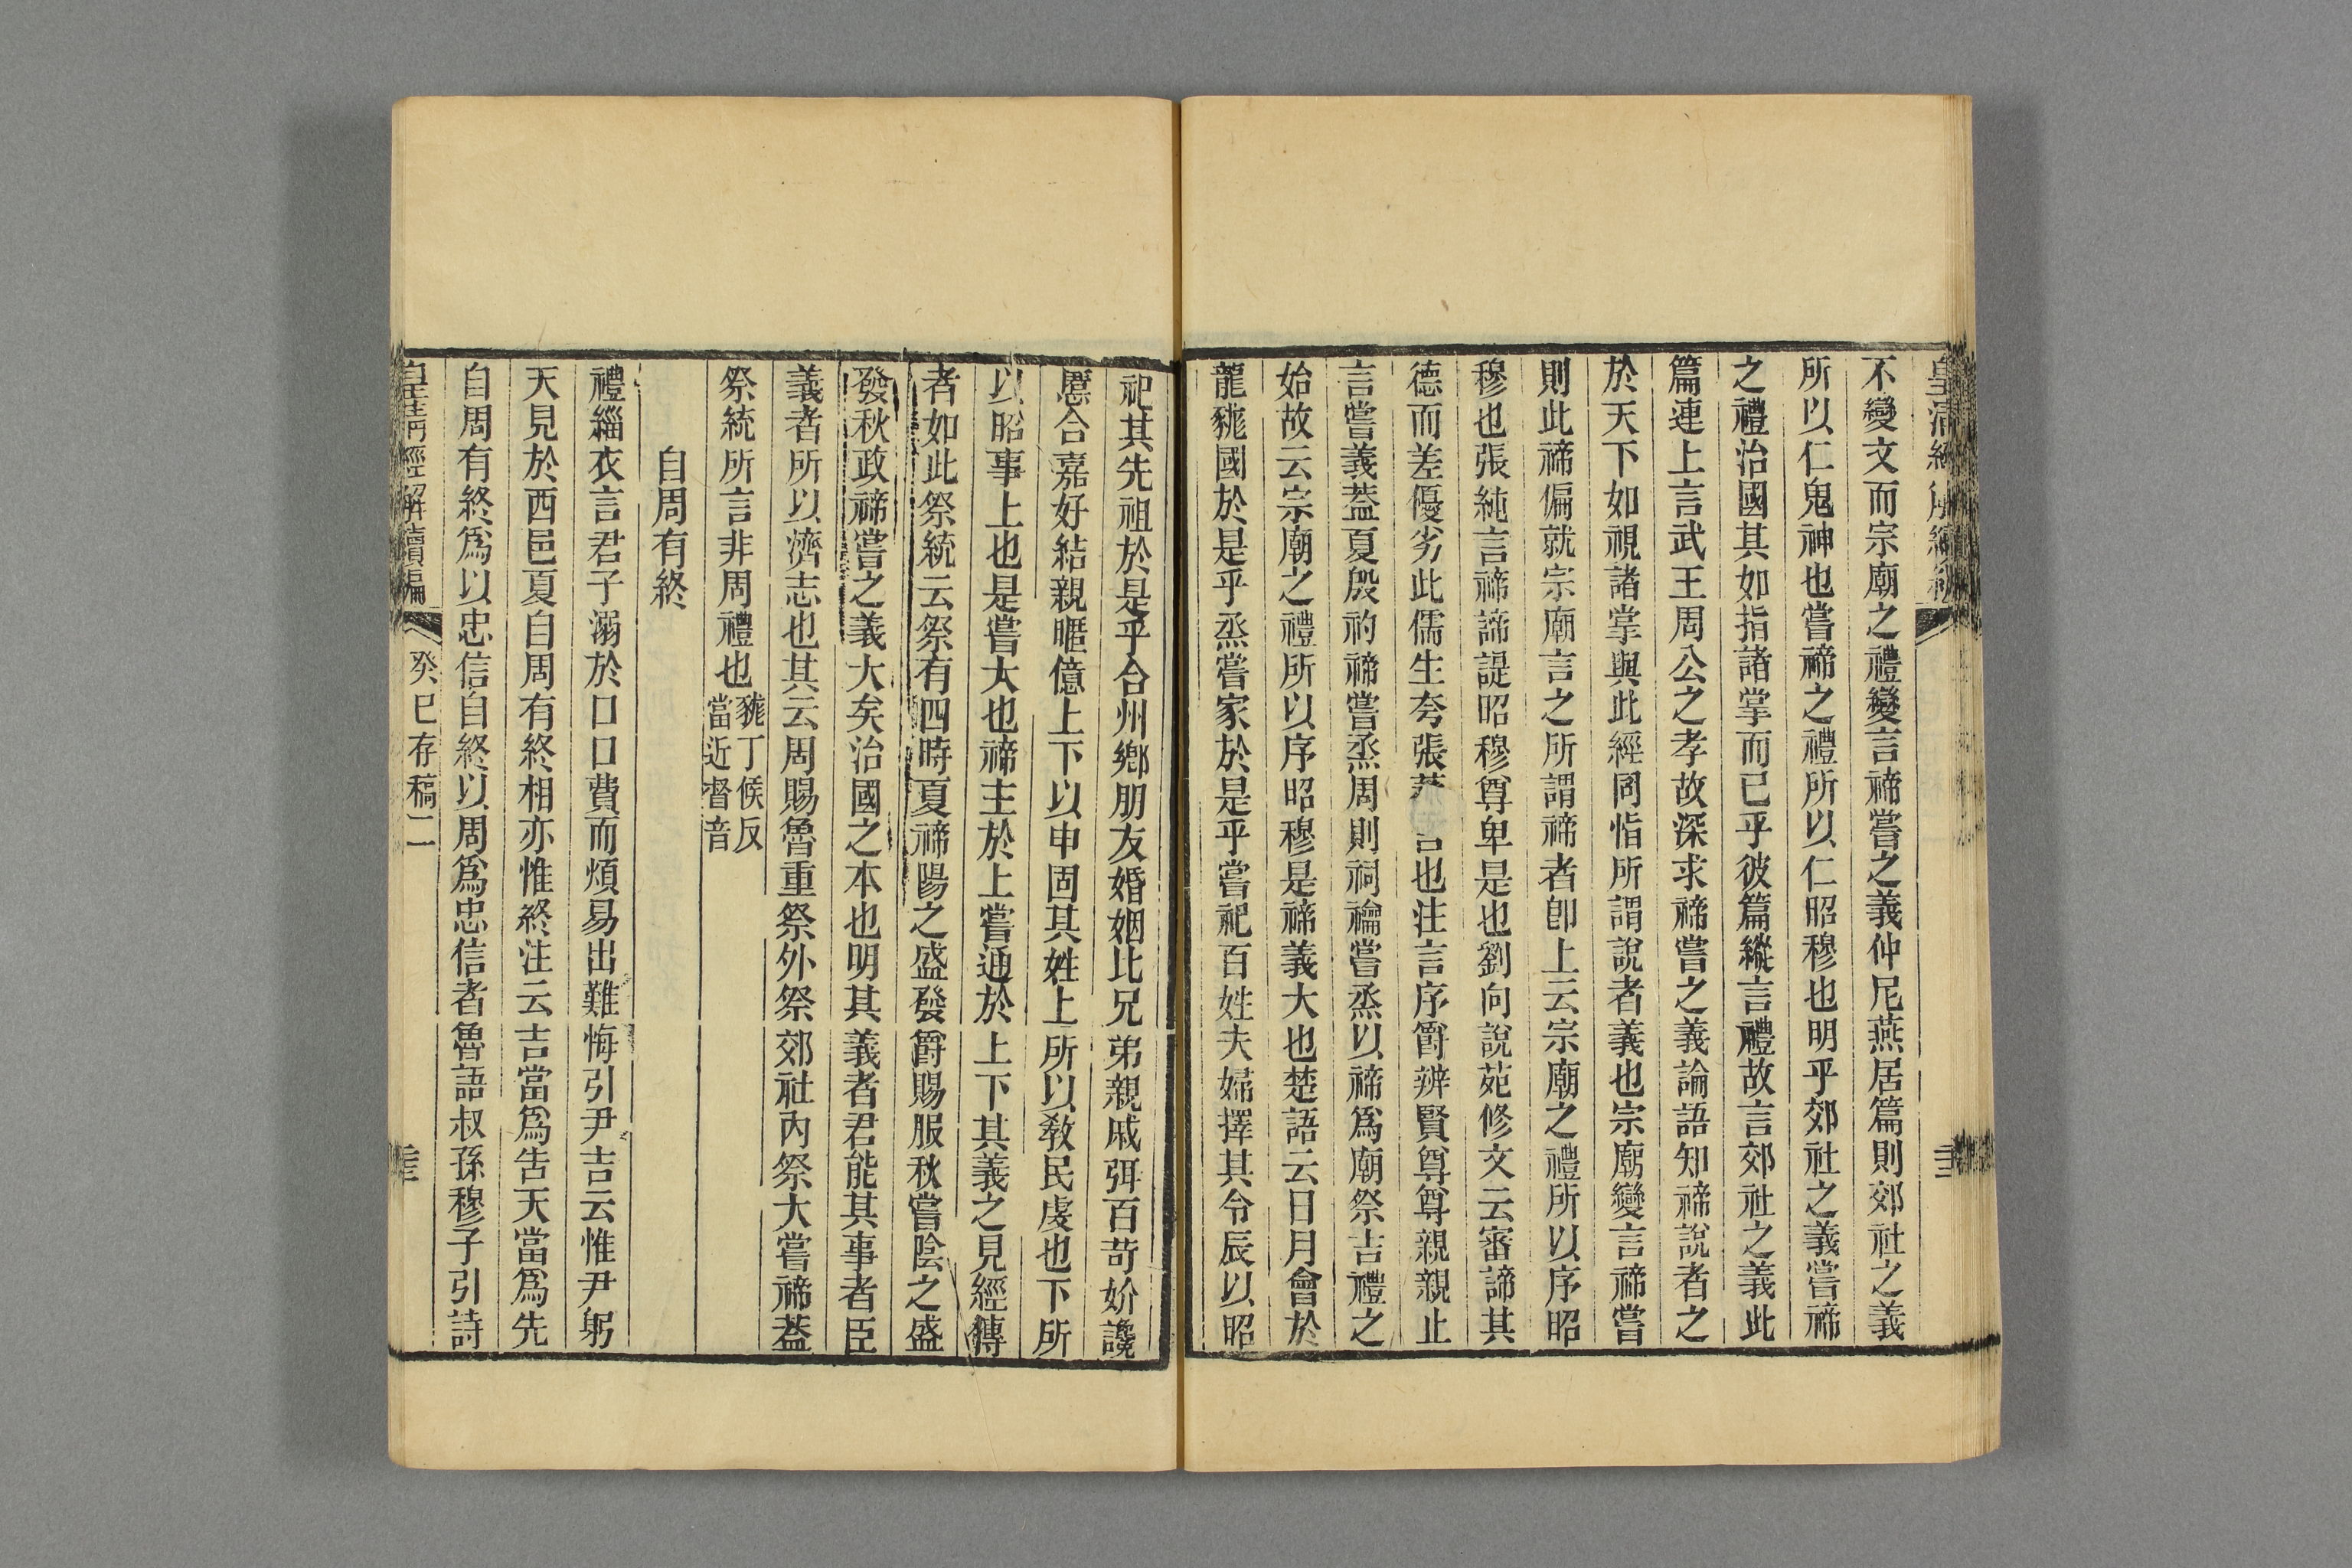 不變文而宗廟之禮變言禘嘗之義仲尼燕居篇則郊社之義
所以仁鬼神也嘗禘之禮所以仁昭穆也明乎郊社之義嘗禘
之禮治國其如指諸掌而已乎彼篇縱言禮故言郊社之義此
篇連上言武王周公之孝故深求禘嘗之義論語知禘說者之
於天下如視諸掌與此經同恉所謂說者義也宗廟變言禘嘗
則此禘偏就宗廟言之所謂禘者卽上云宗廟之禮所以序昭
穆也張純言禘諦諟昭穆尊卑是也劉向說苑修文云審諦其
德而差優劣此儒生夸張也注言序爵辨賢尊尊親親止
言嘗義葢夏殷礿禘嘗烝周則祠禴嘗烝以禘爲廟祭吉禮之
始故云宗廟之禮所以序昭穆是禘義大也楚語云日月會於
龍𧱓國於是乎烝嘗家於是乎嘗祀百姓夫婦擇其令辰以昭
祀其先祖於是乎合州鄉朋友婚姻比兄弟親戚弭百苛妎讒
慝合嘉好結親暱億上下以申固其姓上所以敎民虔也下所
以昭事上也是嘗大也禘主於上嘗通於上下其義之見經傳
者如此祭統云祭有四時夏禘陽之盛發爵賜服秋嘗陰之盛
發秋政禘嘗之義大矣治國之本也明其義者君能其事者臣
義者所以濟志也其云周賜魯重祭外祭郊社內祭大嘗禘葢
祭統所言非周禮也𧱓丁侯反
當近督音
自周有終
禮緇衣言君子溺於口口費而煩易出難悔引尹吉云惟尹躬
天見於西邑夏自周有終相亦惟終注云吉當爲告天當爲先
自周有終爲以忠信自終以周爲忠信者魯語叔孫穆子引詩
皇淸經解續編
癸巳存稿二